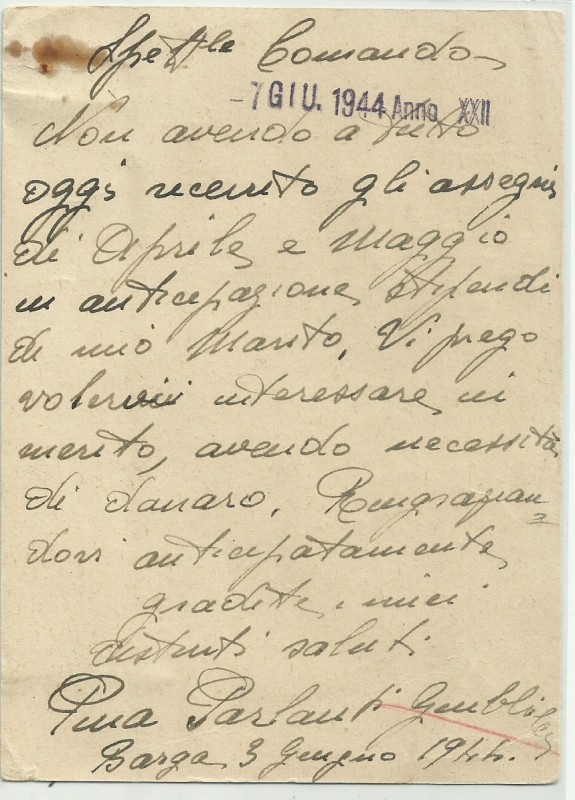 Spett.le Comando
-7 GIU. 1944 Anno XXII
Non avendo a tutto
oggi ricevuto gli assegni
di Aprile e Maggio
in anticipazione stipendi
di mio Marito, Vi prego
volervi interessare in
merito, avendo necessità
di danaro. Ringrazian=
dovi anticipatamente
gradite i miei
distinti saluti
Pina Parlanti
Barga 3 Giugno 1944.